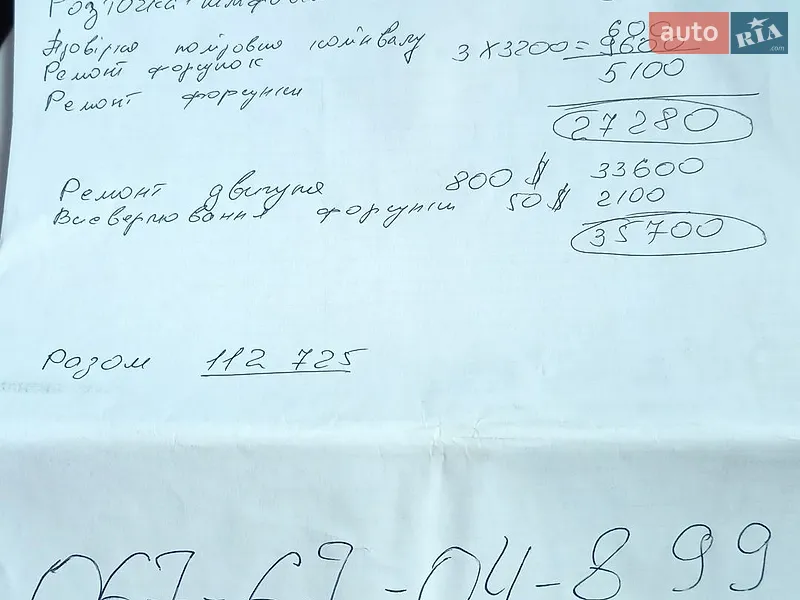 Розточка шліфов
Провірка полировка колінвалу 600
Ремонт форсунок 3 x 3200 = 9600
Ремонт форсунки 5100
27 280
Ремонт двигуна 800 $ 33600
Висверлювання форсунки 50 $ 2100
35700
Разом 112 725
067-69-04-899
auto RIA .com